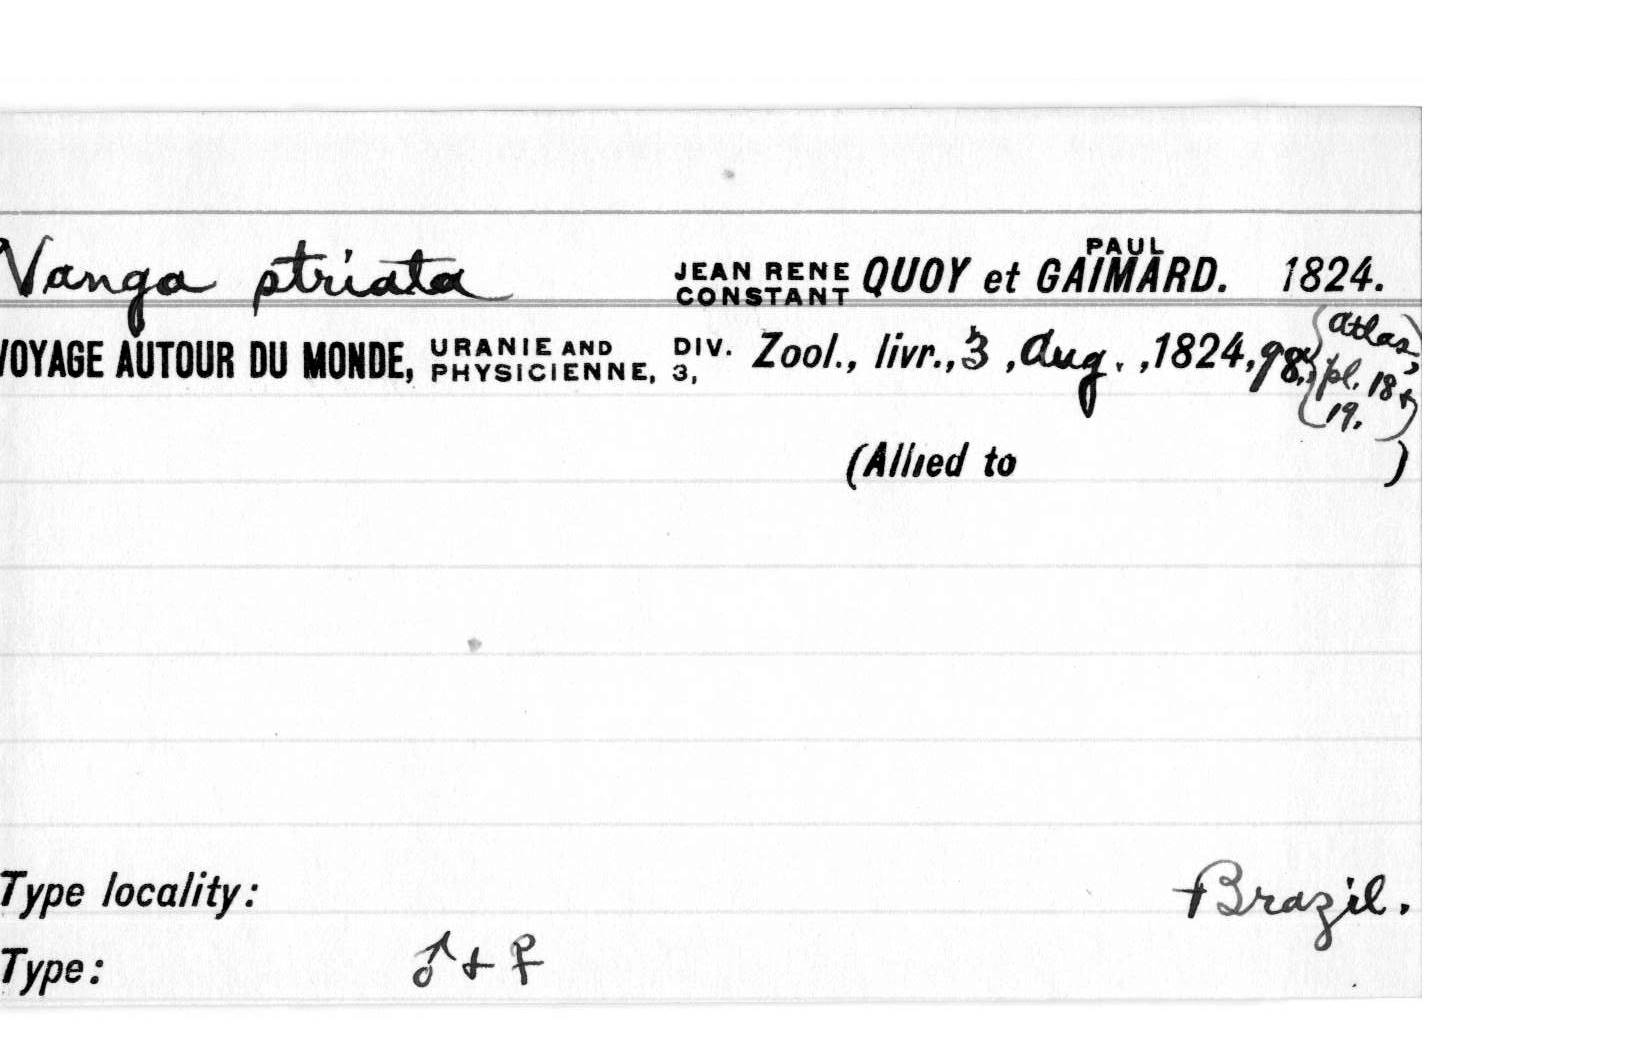 Vanga striata JEAN RENE CONSTANT QUOY et PAUL GAIMARD. 1824.
VOYAGE AUTOUR DU MONDE, URANIE AND PHYSICIENNE, DIV. 3, Zool., livr., 3 , Aug. , 1824, 98, (atlas, pl. 18 + 19.)
(Allied to )
Type locality: Brazil.
Type: ♂ + ♀